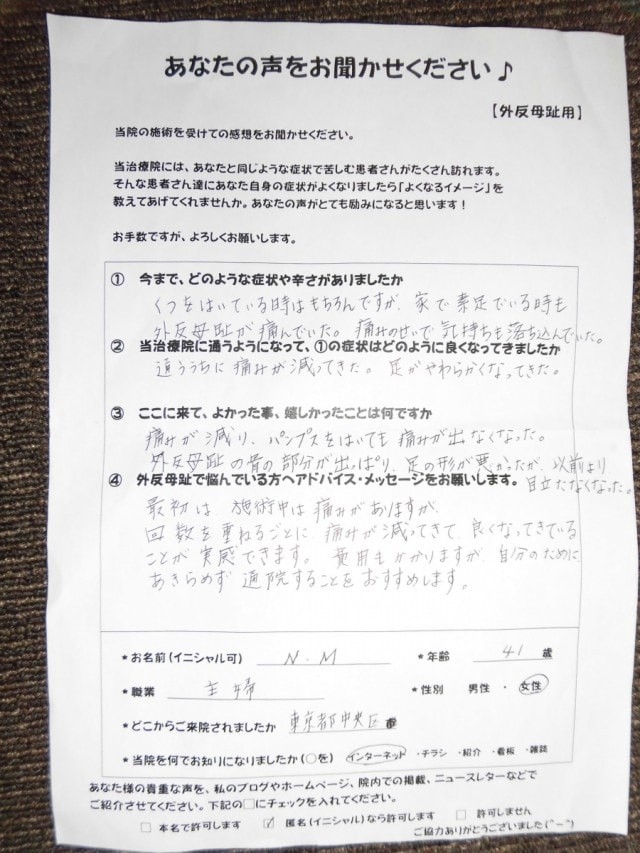 あなたの声をお聞かせください♪
【外反母趾用】
当院の施術を受けての感想をお聞かせください。
当治療院には、あなたと同じような症状で苦しむ患者さんがたくさん訪れます。
そんな患者さん達にあなた自身の症状がよくなりましたら「よくなるイメージ」を
教えてあげてくれませんか。あなたの声がとても励みになると思います！
お手数ですが、よろしくお願いします。
① 今まで、どのような症状や辛さがありましたか
くつをはいている時はもちろんですが、家で素足でいる時も
外反母趾が痛んでいた。痛みのせいで気持ちも落ち込んでいた。
② 当治療院に通うようになって、①の症状はどのように良くなってきましたか
通ううちに痛みが減ってきた。足がやわらかくなってきた。
③ ここに来て、よかった事、嬉しかったことは何ですか
痛みが減り、パンプスをはいても痛みが出なくなった。
外反母趾の骨の部分が出っぱり、足の形が悪かったが、以前より
目立たなくなった。
④ 外反母趾で悩んでいる方へアドバイス・メッセージをお願いします。
最初は施術中は痛みがありますが、
回数を重ねるごとに痛みが減ってきて、良くなってきている
ことが実感できます。費用もかかりますが、自分のために
あきらめず通院することをおすすめします。
*お名前(イニシャル可) N.M *年齢 41 歳
*職業 主婦 *性別 男性 ・ 女性
*どこからご来院されましたか 東京都中央区
*当院を何でお知りになりましたか(○を) インターネット ・チラシ ・紹介 ・看板 ・雑誌
あなた様の貴重な声を、私のブログやホームページ、院内での掲載、ニュースレターなどで
ご紹介させてください。下記の□にチェックを入れてください。
□ 本名で許可します ☑ 匿名(イニシャル)なら許可します □ 許可しません
ご協力ありがとうございました(^-^)